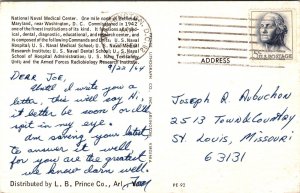 National Naval Medical Center. One mile east of Bethesda,
Maryland, near Washington, D. C. Commissioned in 1942
one of the finest institutions of its kind. It
dental, diagnostic, educational, research and
U. S. Naval
Hospital; U. S. Naval Medical School; U. S. Naval Medical
Research Institute; U. S. Naval Dental School; U. S. Naval
School of Hospital Administration; U. S. Navy
Unit; and the Armed Forces Radiobiology Research Institute.
9/22/64
DEAR JOE,
Until I write you a
letter, this will say Hi,
it better be soon or I'll
spit in my eye.
Am saving your latest
to answer it well,
for you are the greatest
we know darn well.
Distributed by L. B. Prince Co., Arl
U.S. POSTAGE
ADDRESS
JOSEPH R. Aubuchon
2513 Town & Country
ST. LOUIS, MISSOURI
63131
PE 92